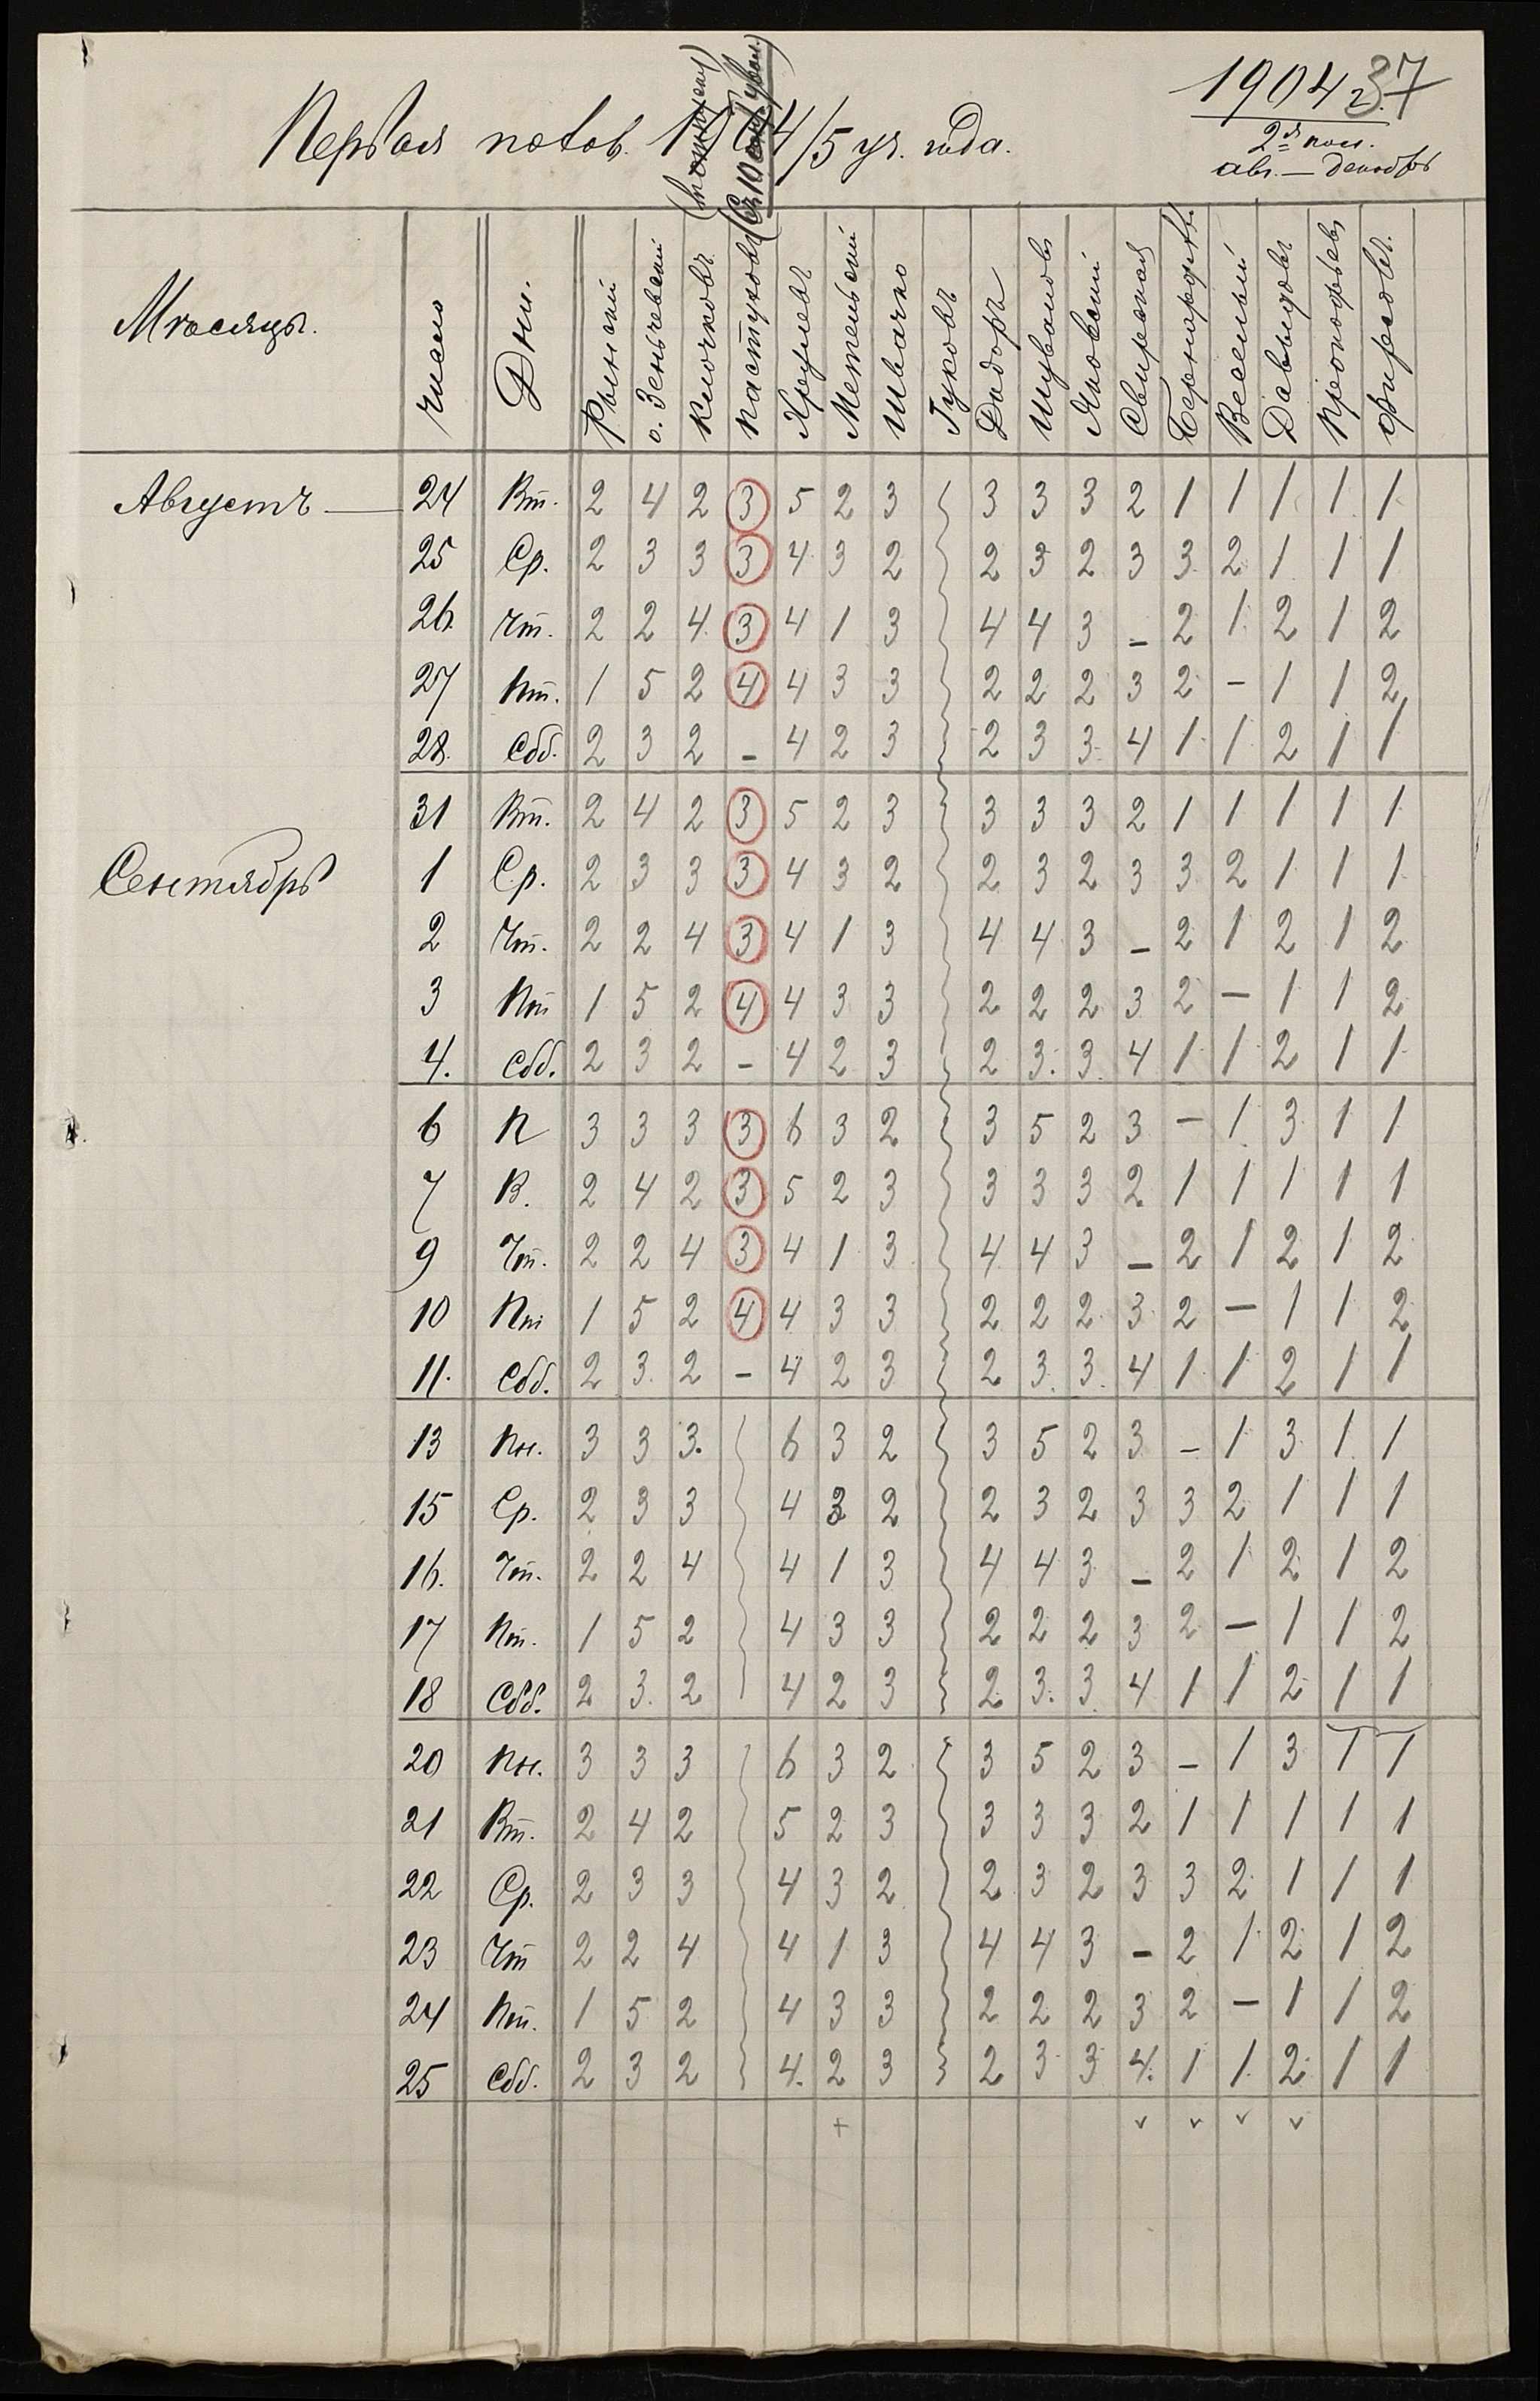 1904 г. 37
2я пол.
авг. — декабрь
Первая полов. 1904/5 уч. года.
(Съ 10 сент. увол.)
Мѣсяцы. Число Дни. Рынскій о. Зеньчевскій Клочковъ Пастуховъ Хрулевъ Метельскій Швачко Гуковъ Дидоръ Шувановъ Яновскій Свирская Бернардъ Веселый Давыдовъ Прокофьевъ Фирсовъ.
Августъ — 24 Вт. 2 4 2 3 5 2 3 3 3 3 2 1 1 1 1 1
25 Ср. 2 3 3 3 4 3 2 2 3 2 3 3 2 1 1 1
26 Чт. 2 2 4 3 4 1 3 4 4 3 – 2 1 2 1 2
27 Пт. 1 5 2 4 4 3 3 2 2 2 3 2 – 1 1 2
28. Сбб. 2 3 2 – 4 2 3 2 3 3 4 1 1 2 1 1
31 Вт. 2 4 2 3 5 2 3 3 3 3 2 1 1 1 1 1
Сентябрь 1 Ср. 2 3 3 3 4 3 2 2 3 2 3 3 2 1 1 1
2 Чт. 2 2 4 3 4 1 3 4 4 3 – 2 1 2 1 2
3 Пт 1 5 2 4 4 3 3 2 2 2 3 2 – 1 1 2
4. Сбб. 2 3 2 – 4 2 3 2 3 3 4 1 1 2 1 1
6 П 3 3 3 3 6 3 2 3 5 2 3 – 1 3 1 1
7 В. 2 4 2 3 5 2 3 3 3 3 2 1 1 1 1 1
9 Чт. 2 2 4 3 4 1 3 4 4 3 – 2 1 2 1 2
10 Пт 1 5 2 4 4 3 3 2 2 2 3 2 – 1 1 2
11. Сбб. 2 3 2 – 4 2 3 2 3 3 4 1 1 2 1 1
13 Пн. 3 3 3 6 3 2 3 5 2 3 – 1 3 1 1
15 Ср. 2 3 3 4 3 2 2 3 2 3 3 2 1 1 1
16. Чт. 2 2 4 4 1 3 4 4 3 – 2 1 2 1 2
17 Пт. 1 5 2 4 3 3 2 2 2 3 2 – 1 1 2
18 Сбб. 2 3 2 4 2 3 2 3 3 4 1 1 2 1 1
20 Пн. 3 3 3 6 3 2 3 5 2 3 – 1 3 1 1
21 Вт. 2 4 2 5 2 3 3 3 3 2 1 1 1 1 1
22 Ср. 2 3 3 4 3 2 2 3 2 3 3 2 1 1 1
23 Чт 2 2 4 4 1 3 4 4 3 – 2 1 2 1 2
24 Пт. 1 5 2 4 3 3 2 2 2 3 2 – 1 1 2
25 Сбб. 2 3 2 4 2 3 2 3 3 4 1 1 2 1 1
+ v v v v